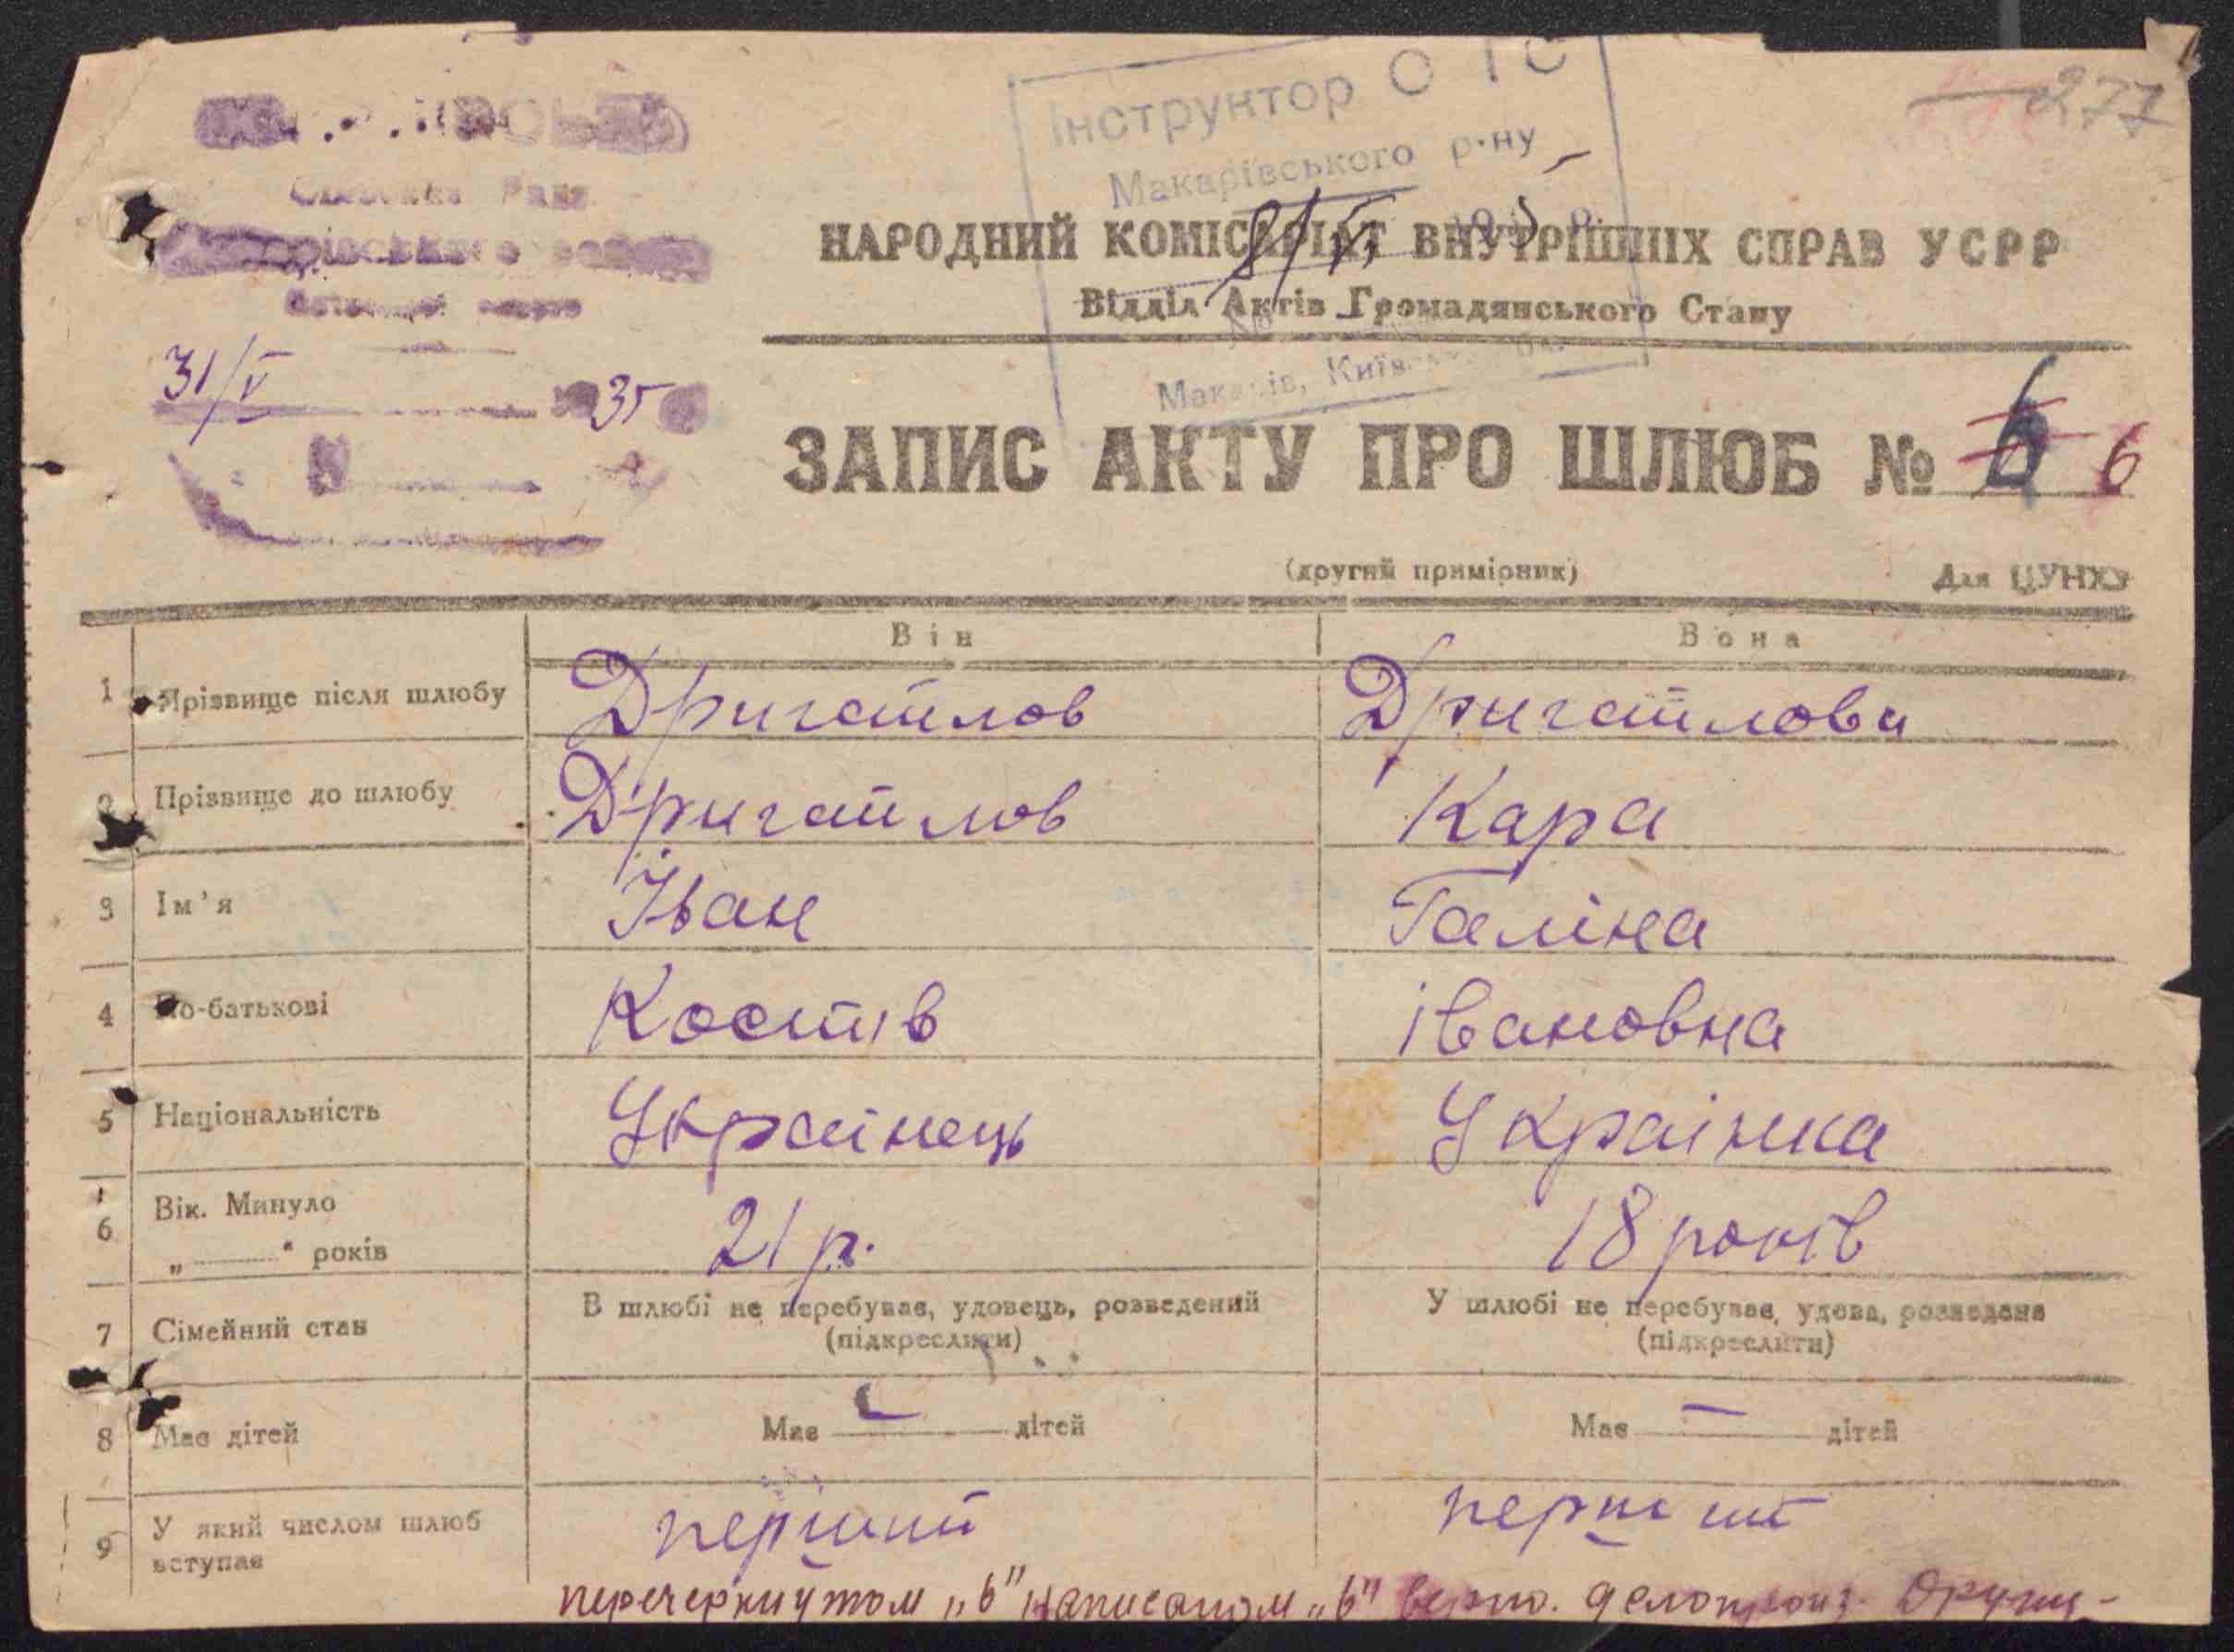 277
Інструктор О
Макарівського р-ну
Сільська Рада
8/VI
НАРОДНИЙ КОМІСАРІАТ ВНУТРІШНІХ СПРАВ УСРР
Відділ Актів Громадянського Стану
31/V 1935
Макарів, Київ
ЗАПИС АКТУ ПРО ШЛЮБ № 6 6
(другий примірник) Для ЦУНХУ
Він Вона
1 Прізвище після шлюбу
2 Прізвище до шлюбу Кара
3 Ім'я Іван Галіна
4 По-батькові Костів івановна
5 Національність Украінець Украінка
6 Вік. Минуло 21 р. 18 років
„ “ років
7 Сімейний стан В шлюбі не перебував, удовець, розведений У шлюбі не перебував, удова, розведена
(підкреслити) (підкреслити)
8 Має дітей Має — дітей Має — дітей
9 У який числом шлюб перший перший
вступає
перечеркнутом „6" написаном „6" верно. делопроиз.